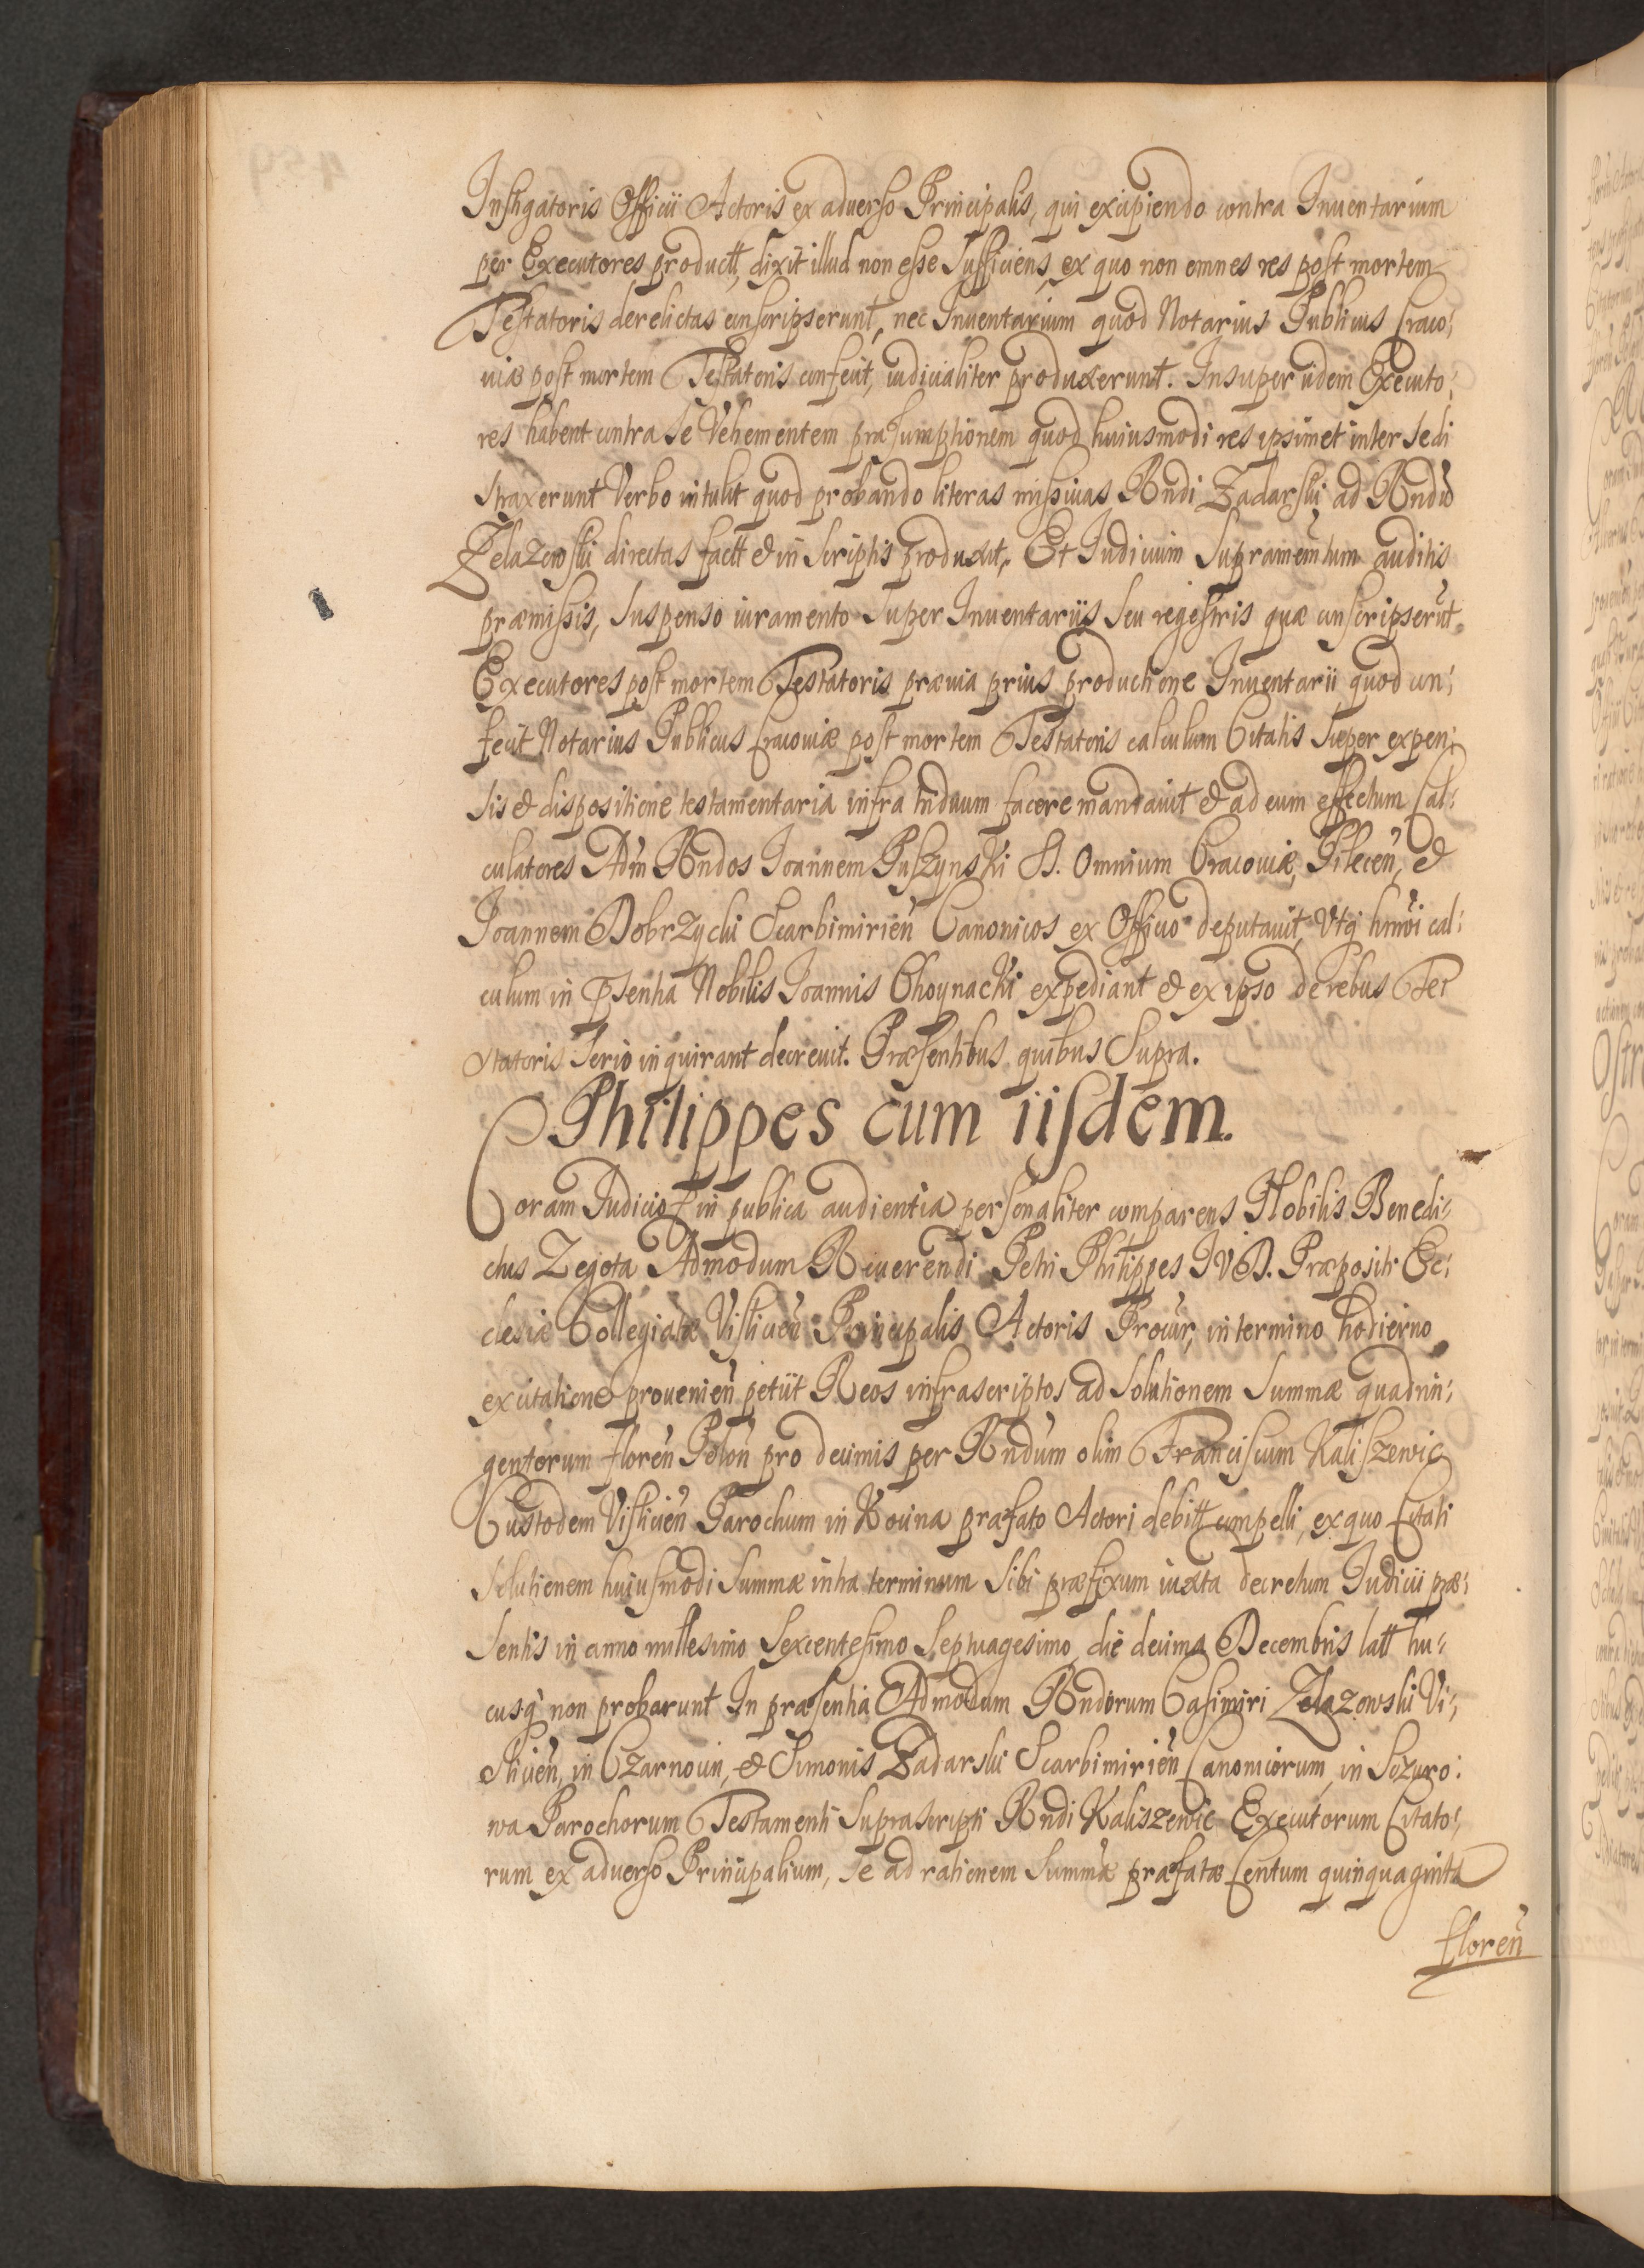 Instigatoris Officii Actoris ex aduerso Principalis, qui excipiendo contra Inuentarium
per Executores productt, dixit illud non esse Sufficiens, ex quo non omnes res post mortem
Testatoris derelictas conscripserunt, nec Inuentarium quod Notarius Publicus Craco:
uiæ post mortem Testatoris confecit, iudicialiter produxerunt. Insuper iidem Executo:
res habent contra se Vehementem præsumptionem quod huiusmodi res ipsimet inter se di
straxerunt Verbo intulit quod probando literas missiuas Rndi Zadarski ad Rndũ
Zelazowski directas factt & in Scriptis produxit. Et Iudicium Supramemtum auditis
præmissis, Suspenso iuramento Super Inuentariis Seu regestris quæ conscripserũt
Executores post mortem Testatoris præuia prius productione Inuentarii quod con:
fecit Notarius Publicus Cracouiæ post mortem Testatoris calculum Citatis Super expen:
sis & dispositione testamentaria infra triduum facere mandauit & ad eum effectum Cal:
culatores Adm̃ Rndos Ioannem Puszynski SS. Omnium Cracouiæ, Pilecen̄, &
Ioannem Dobrzychi Scarbimirien̄ Canonicos ex Officio deputauit, Vtq̃ hmõi cal:
culum in Pſentia Nobilis Ioannis Choynacki expediant & ex ipso de rebus Tes
statoris Serio inquirant decreuit. Præsentibus quibus Supra.
Philippes cum iisdem.
Coram Iudicio & in publica audientia personaliter comparens Nobilis Benedi:
ctus Zegota Admodum Reuerendi Petri Philippes IVD. Præpositi Ec:
clesiæ Collegiatæ Vislicien̄ Principalis Actoris Procur, in termino hodierno
ex citatione prouenien̄ petiit Reos infrascriptos ad Solutionem Summæ quadrin:
gentorum floren̄ Polon̄ pro decimis per Rndum olim Franciscum Kaliszewic
Custodem Vislicien̄ Parochum in Kocina præfato Actori debitt compelli, ex quo Citati
Solutionem huiusmodi Summæ intra terminum Sibi præfixum iuxta decretum Iudicii præ:
sentis in anno millesimo Sexcentesimo Septuagesimo, die decima Decembris latt hu:
cusq̃ non probarunt In præsentia Admodum Rndorum Casimiri Zelazowski Vi:
slicien̄, in Czarnocin, & Simonis Zadarski Scarbimirien̄ Canonicorum, in Sczuro:
wa Parochorum Testamenti Suprascripti Rndi Kaliszewic Executorum Citato:
rum ex aduerso Principalium, se ad rationem Summæ præfatæ Centum quinquaginta
floren̄